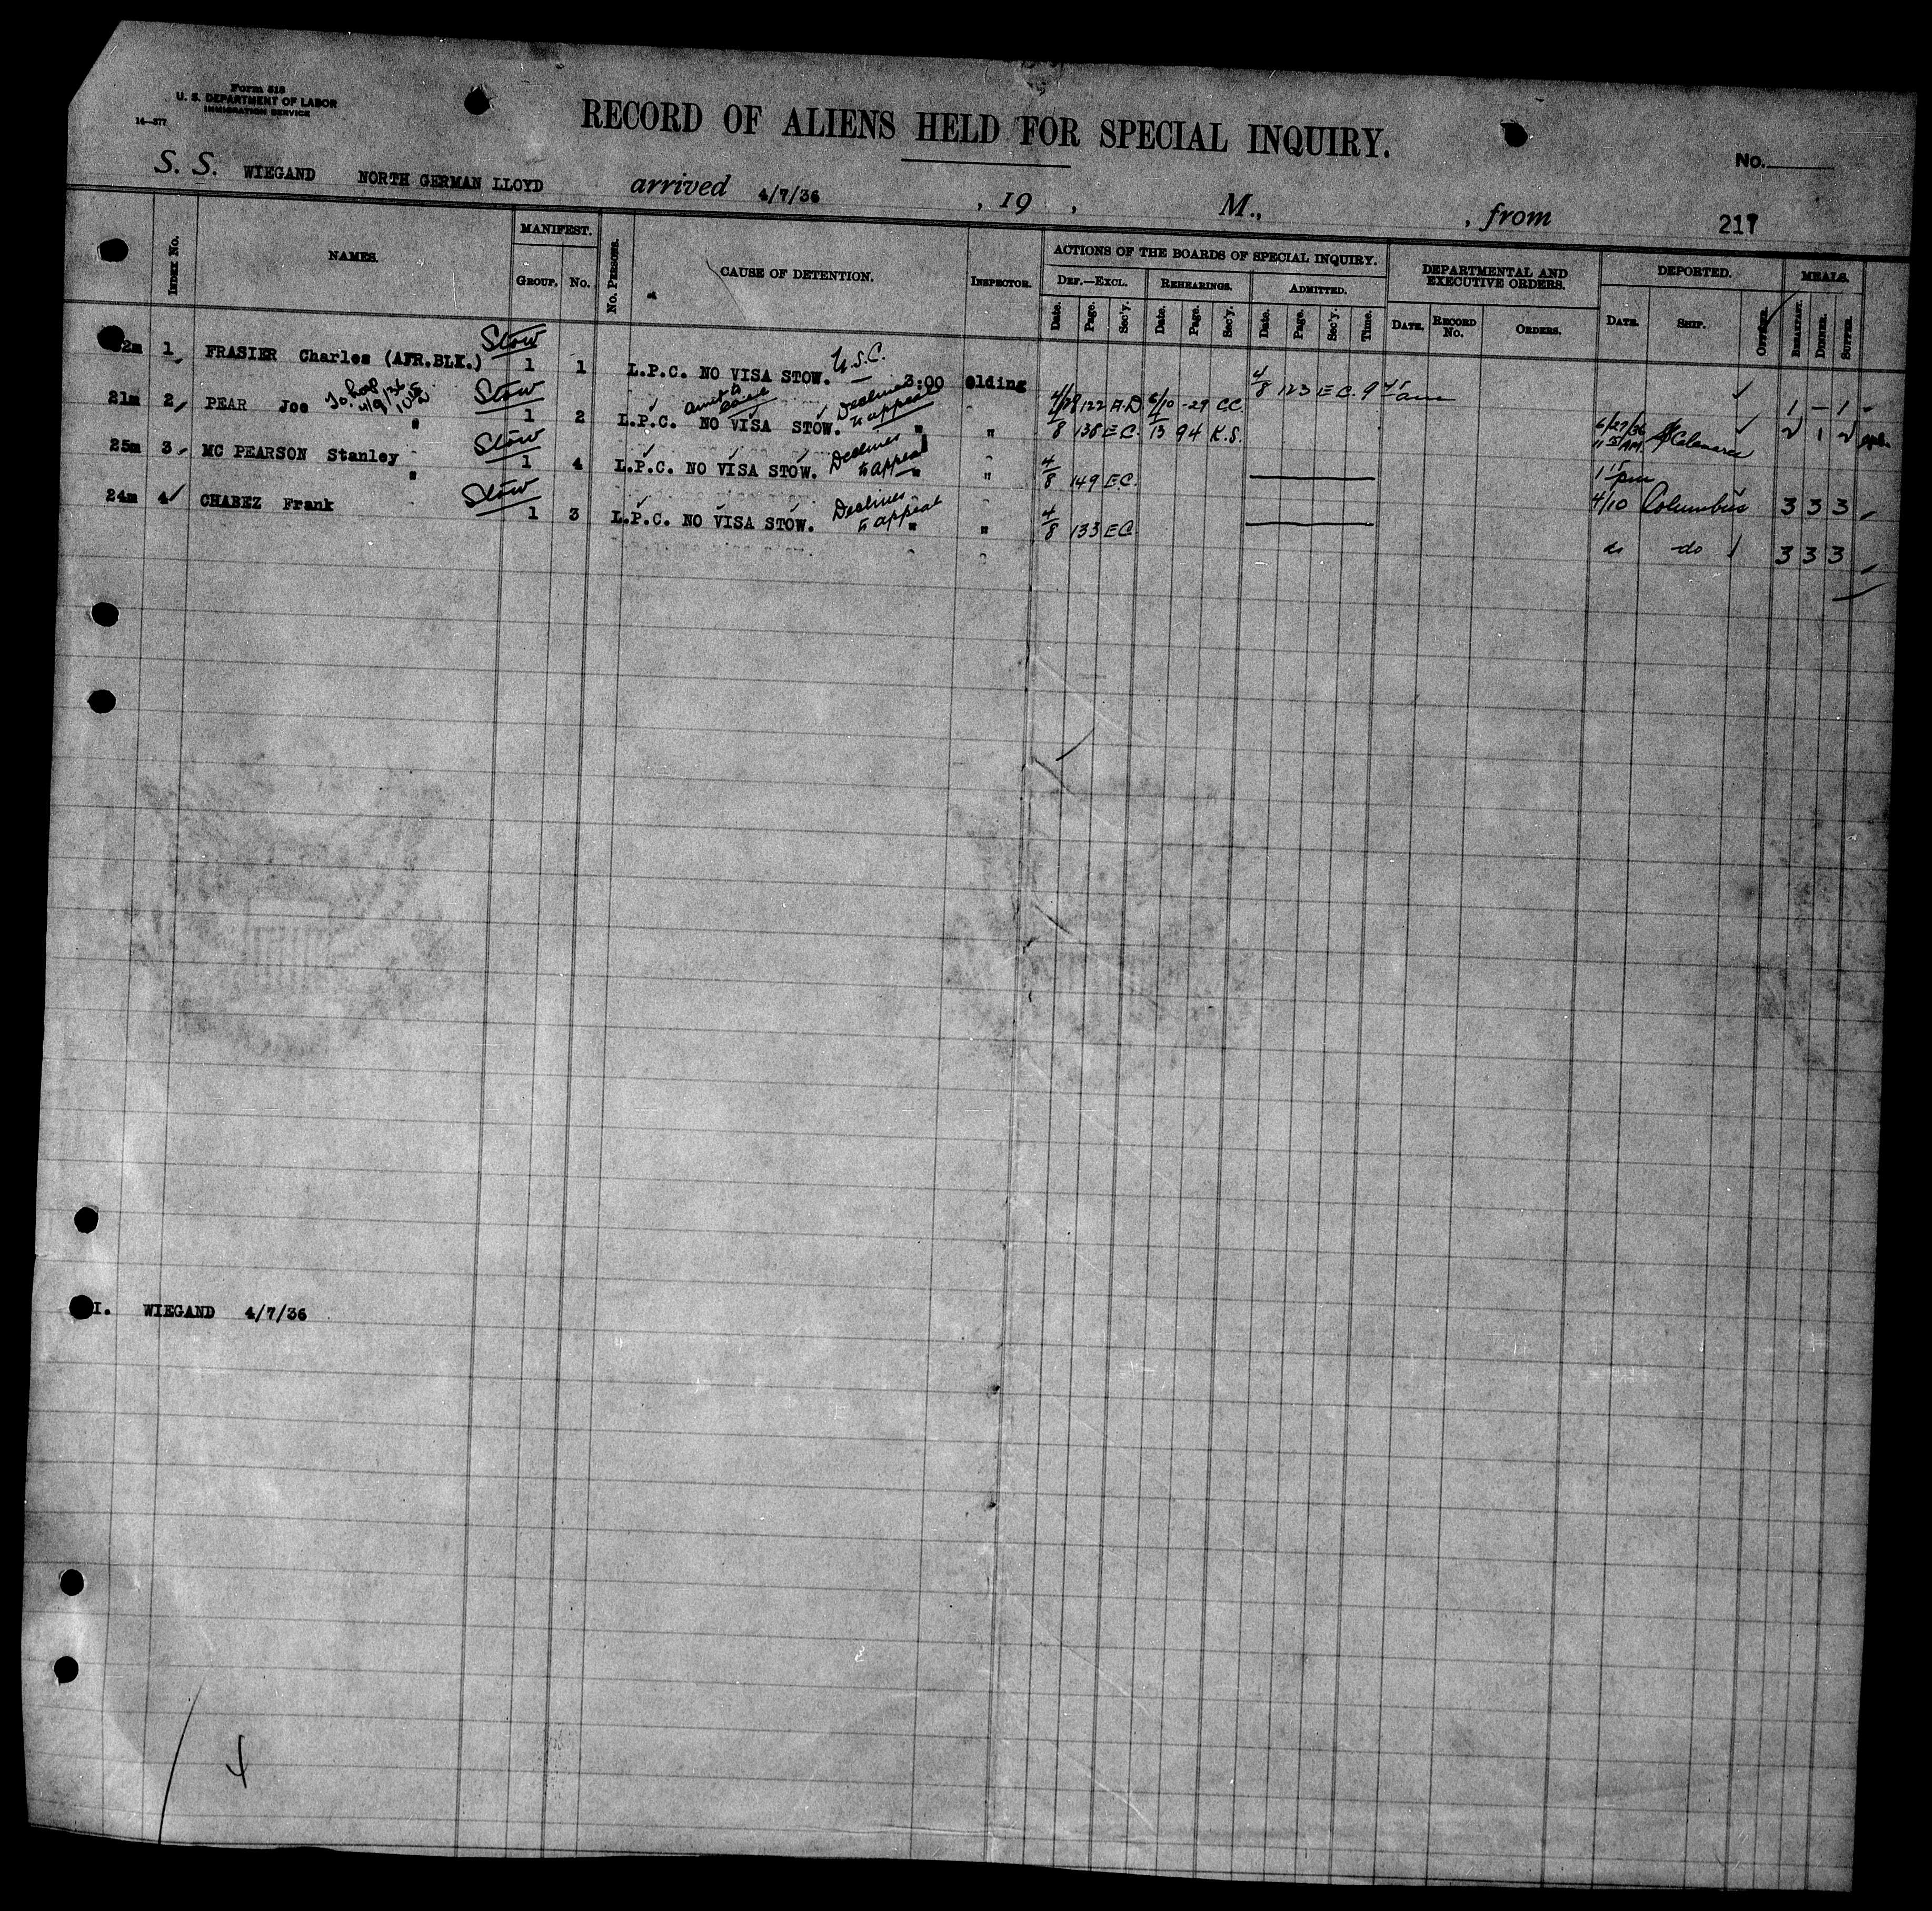 Form 518
U. S. DEPARTMENT OF LABOR
IMMIGRATION SERVICE
14—577
RECORD OF ALIENS HELD FOR SPECIAL INQUIRY.
No.
S. S. WIEGAND NORTH GERMAN LLOYD arrived 4/7/36 , 19 , M., , from 217
INDEX No. NAMES. MANIFEST. GROUP. No. No. PERSONS. CAUSE OF DETENTION. INSPECTOR. ACTIONS OF THE BOARDS OF SPECIAL INQUIRY. DEF.—EXCL. Date. Page. Sec'y. REHEARINGS. Date. Page. Sec'y. ADMITTED. Date. Page. Sec'y. Time. DEPARTMENTAL AND EXECUTIVE ORDERS. DATE. RECORD No. ORDERS. DEPORTED. DATE. SHIP. OFFICER. MEALS. BREAKFAST. DINNER. SUPPER.
2m 1 FRASIER Charles (AFR.BLK.) Stow 1 1 L.P.C. NO VISA STOW. U.S.C. 3:00 elding 4/8 123 E.C. 9 am 1 — 1
21m 2 PEAR Joe To hosp 4/9/36 Stow 1 2 L.P.C. NO VISA STOW. Declines to appeal " " 4/29 122 A.D 6/10 -29 CC.
4/8 138 E.C. 94 K.S. 6/27/36 11 AM Calamares 2 1 2
25m 3 MC PEARSON Stanley " Stow 1 4 L.P.C. NO VISA STOW. Declines to appeal " " 4/8 149 E.C. 1 pm 4/10 Columbus 3 3 3
24m 4 CHABEZ Frank Stow 1 3 L.P.C. NO VISA STOW. Declines to appeal " " 4/8 133 E.C. do do 3 3 3
I. WIEGAND 4/7/36
4